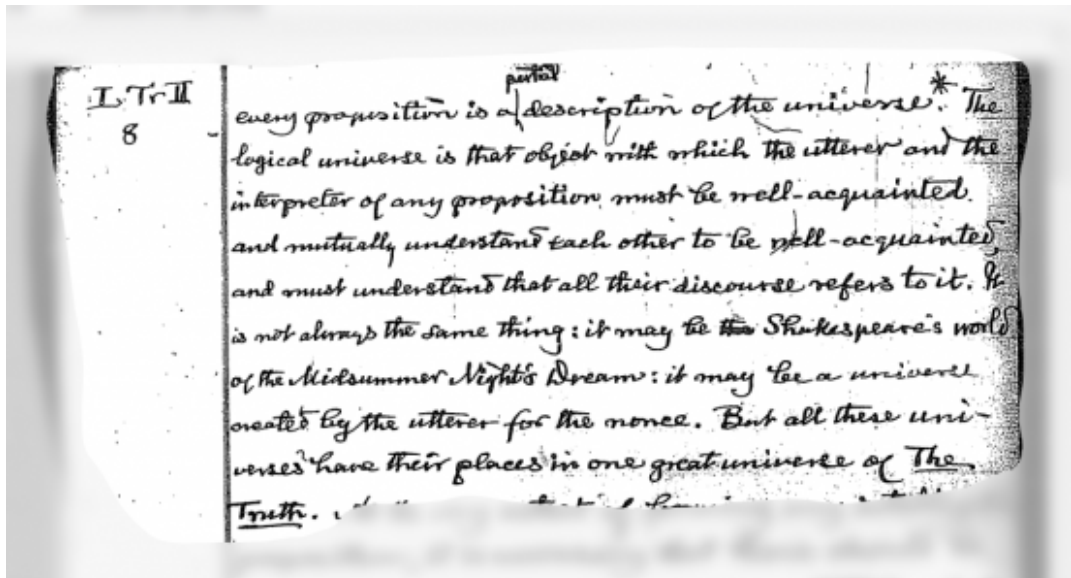 I, Tr II
8
partial
every proposition is a description of the universe.* The
logical universe is that object with which the utterer and the
interpreter of any proposition must be well-acquainted
and mutually understand each other to be well-acquainted,
and must understand that all their discourse refers to it. It
is not always the same thing: it may be the Shakespeare's world
of the Midsummer Night's Dream: it may be a universe
created by the utterer for the nonce. But all these uni-
verses have their places in one great universe of The
Truth.